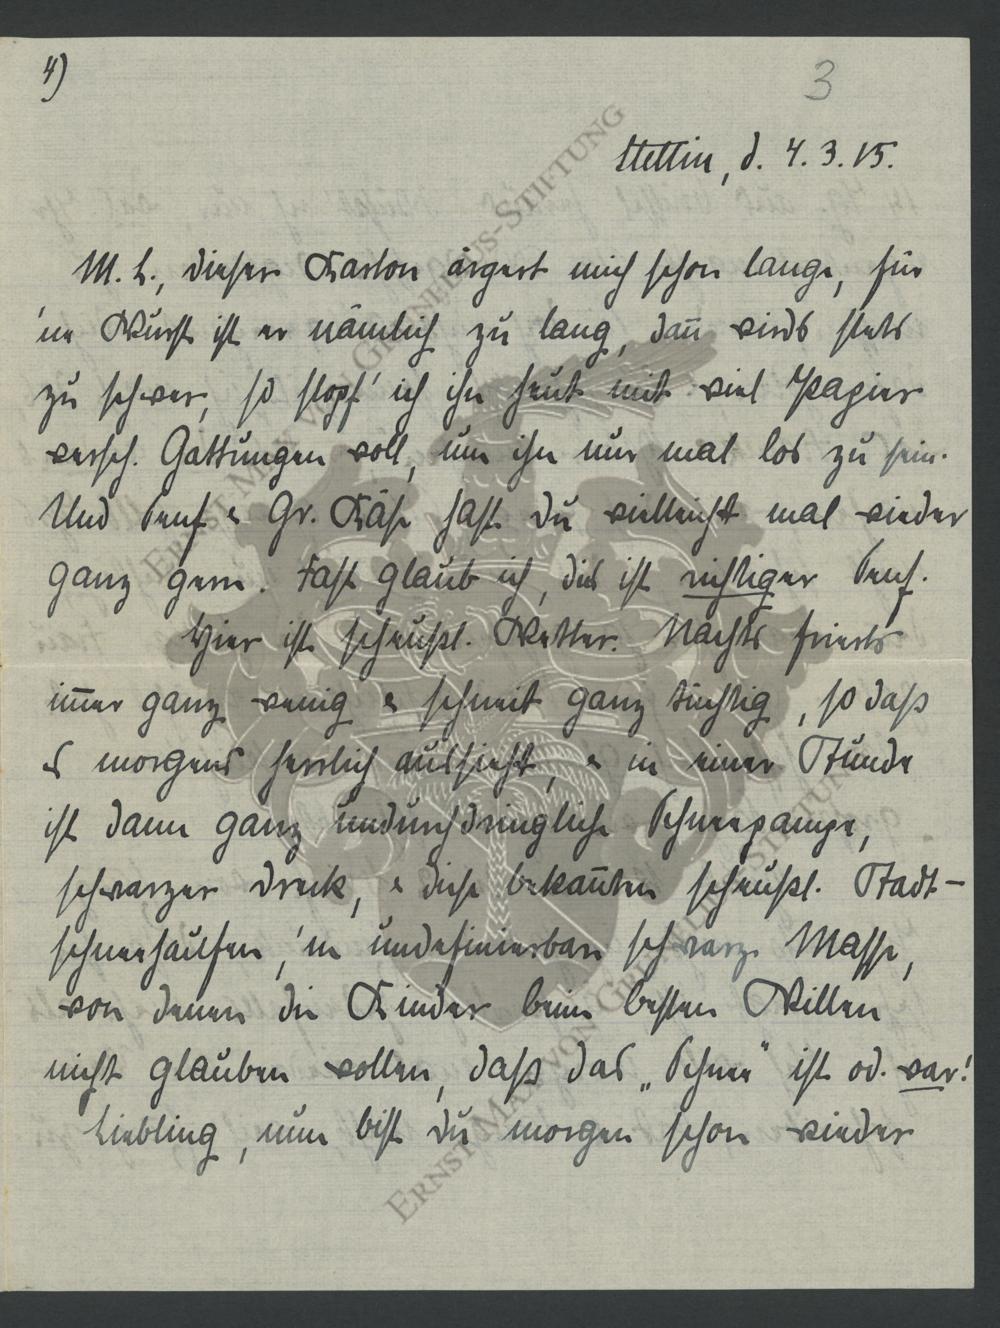 4)
3
Stettin, d. 4.3.15.
M. L., dieser Karton ärgert mich schon lange, für
'ne Wurst ist er nämlich zu lang, dan̄ wirds stets
zu schwer, so stopf' ich ihn heut mit viel Papier
versch. Gattungen voll, um ihn nur mal los zu sein.
Und Senf & Gr. Käse hast du vielleicht mal wieder
ganz gern. Fast glaub ich, dies ist richtiger Senf.
Hier ist scheußl. Wetter. Nachts frierts
im̄er ganz wenig & schneit ganz tüchtig, so daß
es morgens herrlich aussieht, & in einer Stunde
ist dann ganz undurchdringliche Schneepampe,
schwarzer Dreck, & diese bekan̄ten scheußl. Stadt-
schneehaufen, 'ne undefinierbare schwarze Masse,
von denen die Kinder beim besten Willen
nicht glauben wollen, daß das „Schnee" ist od. war!
Liebling, nun bist du morgen schon wieder
ERNST-MAX VON GRUNELIUS-STIFTUNG
ERNST-MAX VON GRUNELIUS-STIFTUNG